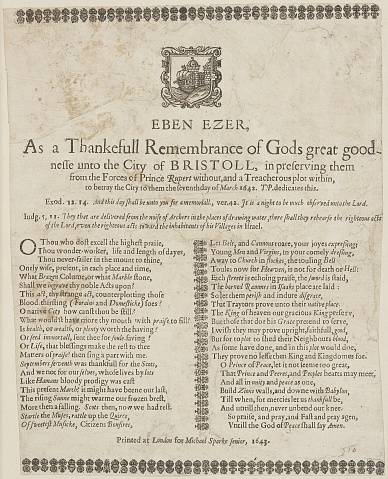 EBEN EZER,
As a Thankefull Remembrance of Gods great good-
nesse unto the City of BRISTOLL, in preserving them
from the Forces of Prince Rupert without, and a Treacherous plot within,
to betray the City to them the seventh day of March 1642. T.P. dedicates this.
Exod. 12. 14. And this day shall be unto you for a memoriall, ver. 42. It is a night to be much observed unto the Lord.
Judg. 5. 11. They that are delivered from the noise of Archers in the places of drawing water, there shall they rehearse the righteous acts
of the Lord, even the righteous acts toward the inhabitants of his Villages in Israel.
O Thou who dost excell the highest praise,
Thou wonder-worker, life and length of dayes,
Thou never-failer in the mount to thine,
Onely wise, present, in each place and time,
What Brazen Columne, or what Marble stone,
Shall we ingrave thy noble Acts upon?
This act, thy strange act, counterplotting those
Blood thirsting (
O native City how canst thou be still?
What wouldst have more thy mouth with praise to fill?
Is health, or wealth, or plenty worth the having?
Or seed immortall, sent thee for soule saving?
Or Life, that blessings make the rest to thee
Matters of praise? then sing a part with me.
September seventh was thankfull for the Scots,
And we too for our selves, whose lives by lots
Like Humans bloody prodigy was cast
This present March it might have beene our last,
The rising Sunne might warme our frozen brest,
More then a falling. Scots then, now we had rest.
Startle the Muses, rattle up the Quires,
Of sweetest Musicke, Citizens Bonfires,
Let Bels, and Cannons roare, your joyes expressing;
Young Men and Virgins, in your comely dressing,
Away to Church in flockes, the touling Bell
Toules now for Hewson, is not for death or Hell:
Each streete is ecchoing praise, the sword is staid,
The horned Rammes in Isaks place are laid:
So let them perish and indure disgrace,
That Traytors prove unto their native place.
The King of heaven our gracious King preserve,
But those that doe his Grace pretend to serve,
I wish they may prove upright, faithfull, good,
But for to plot to shed their Neighbours blood,
As some have done, and in this plot would doe,
They prove no lesse then King and Kingdomes foe.
O Prince of Peace, let it not seeme too great,
That Prince and Peeres, and Peoples hearts may meet,
And all in unity and peace as one,
Build Zions walls, and downe with Babylon,
Till when, for mercies let us thankfull be,
And untill then, never unbend our knee.
So praise, and pray, and Fast and pray agen,
Untill the God of Peace shall say Amen.
Printed at London for Michael Sparke senior, 1643.